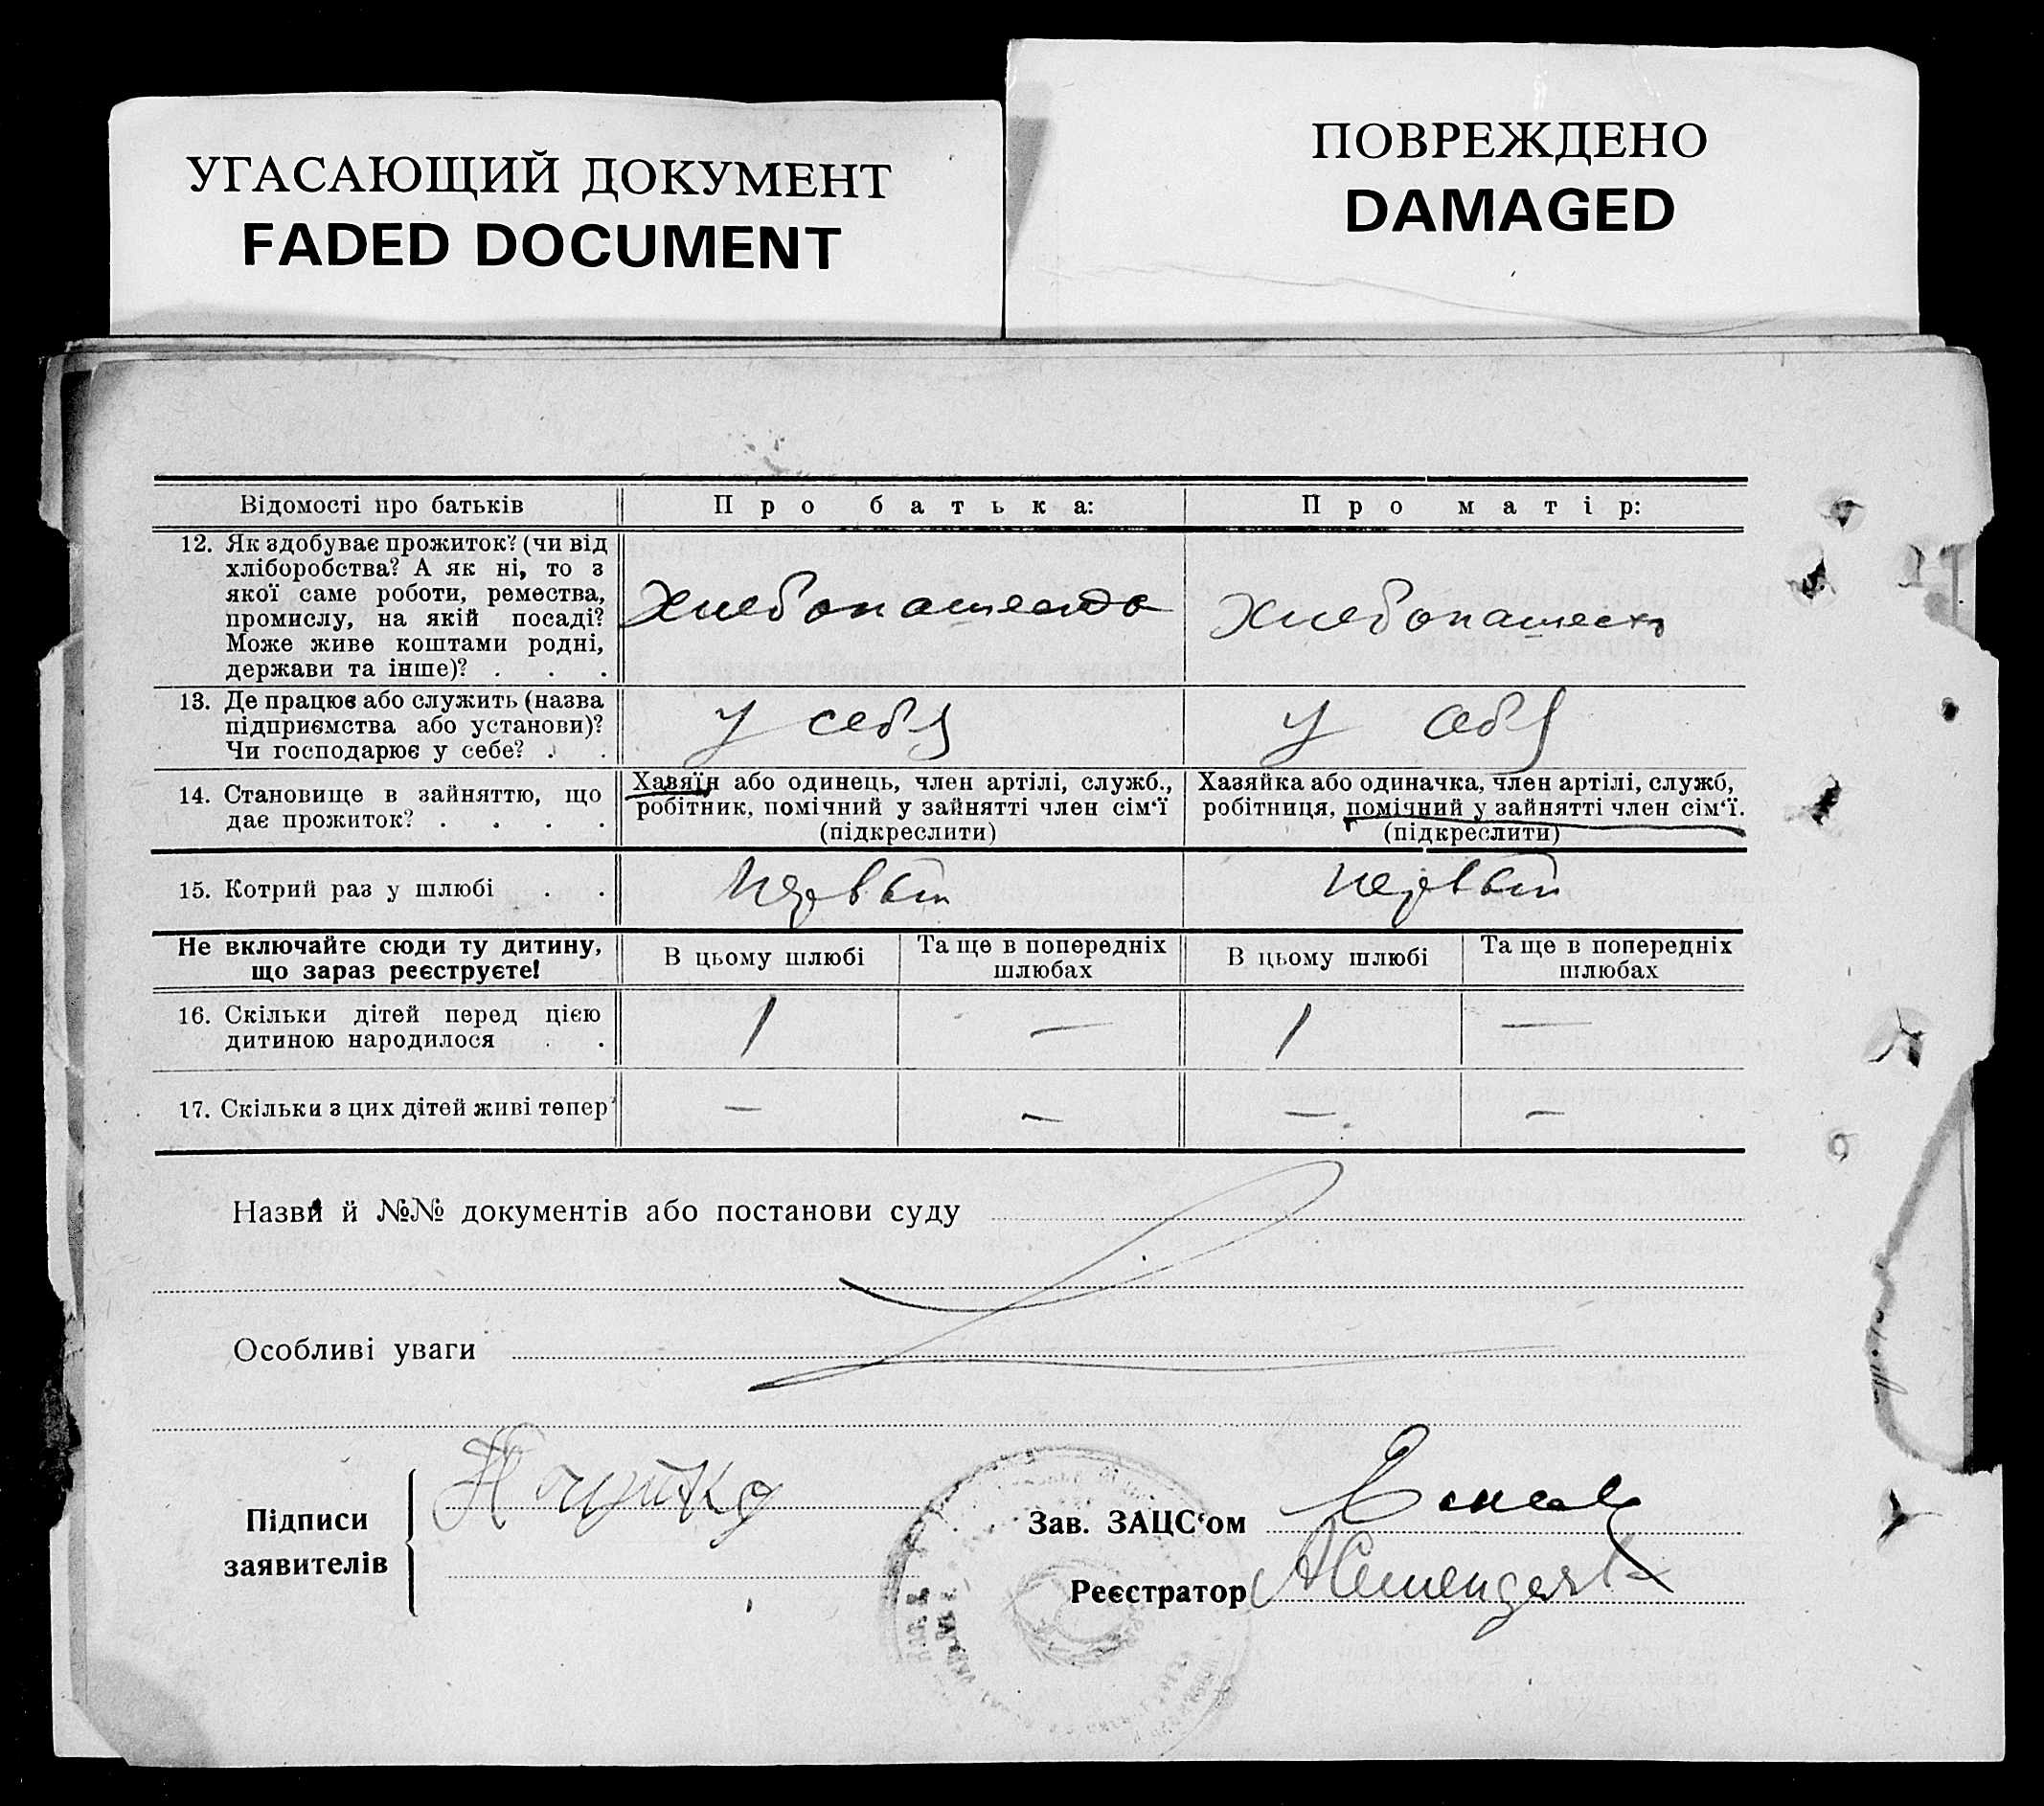 УГАСАЮЩИЙ ДОКУМЕНТ
FADED DOCUMENT
ПОВРЕЖДЕНО
DAMAGED
Відомості про батьків
Про батька:
Про матір:
12. Як здобуває прожиток? (чи від
хліборобства? А як ні, то з
якої саме роботи, ремества,
промислу, на якій посаді?
Може живе коштами родні,
держави та інше)? . . .
Хлебопашество
Хлебопашест
13. Де працює або служить (назва
підприємства або установи)?
Чи господарює у себе? . .
у себя
у себя
14. Становище в зайняттю, що
дає прожиток? . . . .
Хазяїн або одинець, член артілі, служб.,
робітник, помічний у зайнятті член сім‘ї
(підкреслити)
Хазяйка або одиначка, член артілі, служб,
робітниця, помічний у зайнятті член сім‘ї.
(підкреслити)
15. Котрий раз у шлюбі . .
первый
первый
Не включайте сюди ту дитину,
що зараз реєструєте!
В цьому шлюбі
Та ще в попередніх
шлюбах
В цьому шлюбі
Та ще в попередніх
шлюбах
16. Скільки дітей перед цією
дитиною народилося . .
1
—
1
—
17. Скільки з цих дітей живі тепер
—
—
—
—
Назви й №№ документів або постанови суду
Особливі уваги
Підписи
заявителів
Зав. ЗАЦС‘ом
Реєстратор